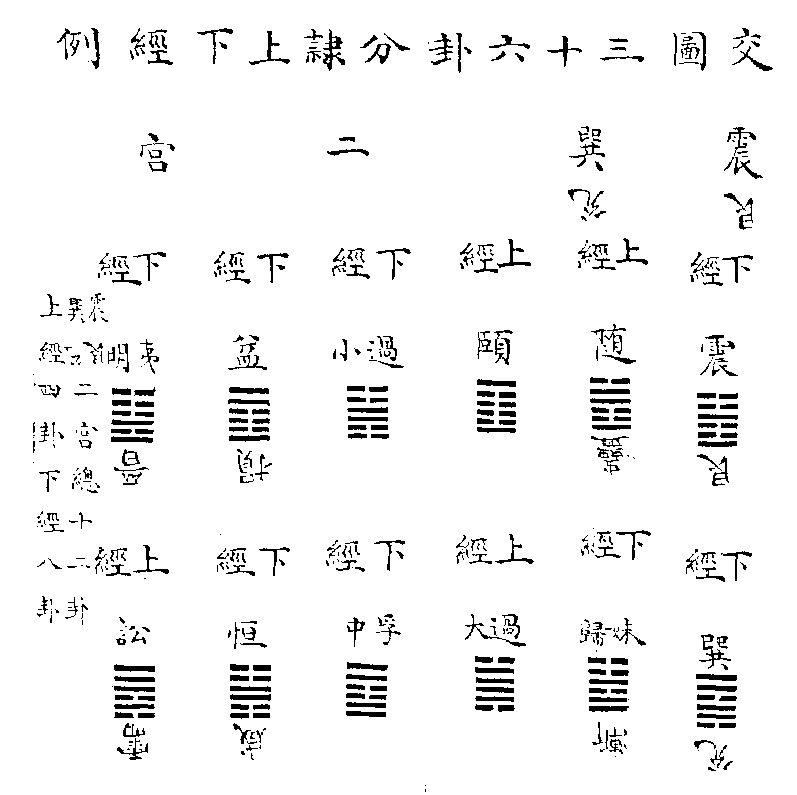 交圖三十六卦分隸上下經例
震 巽 二 宮
艮 兌
下經 上經 上經 下經 下經 下經
震 随 頤 小過 益 明夷
艮 蠱 損 晋
下經 下經 上經 下經 下經 上經
巽 歸妹 大過 中孚 恒 訟
兌 漸 咸 需
震巽
艮兌
二宮總十二卦
上經四卦下經八卦